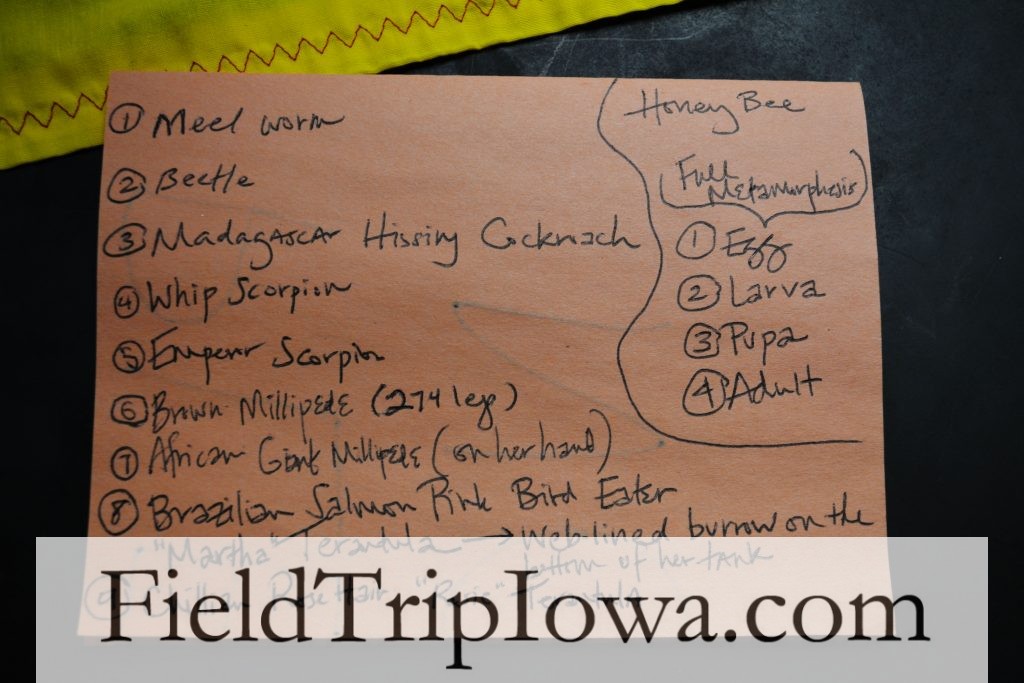 ① Meel worm
② Beetle
③ Madagascar Hissing Cockroach
④ Whip Scorpion
⑤ Emperor Scorpion
⑥ Brown Millipede (274 legs)
⑦ African Giant Millipede (on her hand)
⑧ Brazilian Salmon Pink Bird Eater
"Martha" Terantula → Web-lined burrow on the
bottom of her tank
Rose Hair Terantula
Honey Bee
(Full
Metamorphesis)
① Egg
② Larva
③ Pupa
④ Adult
FieldTripIowa.com